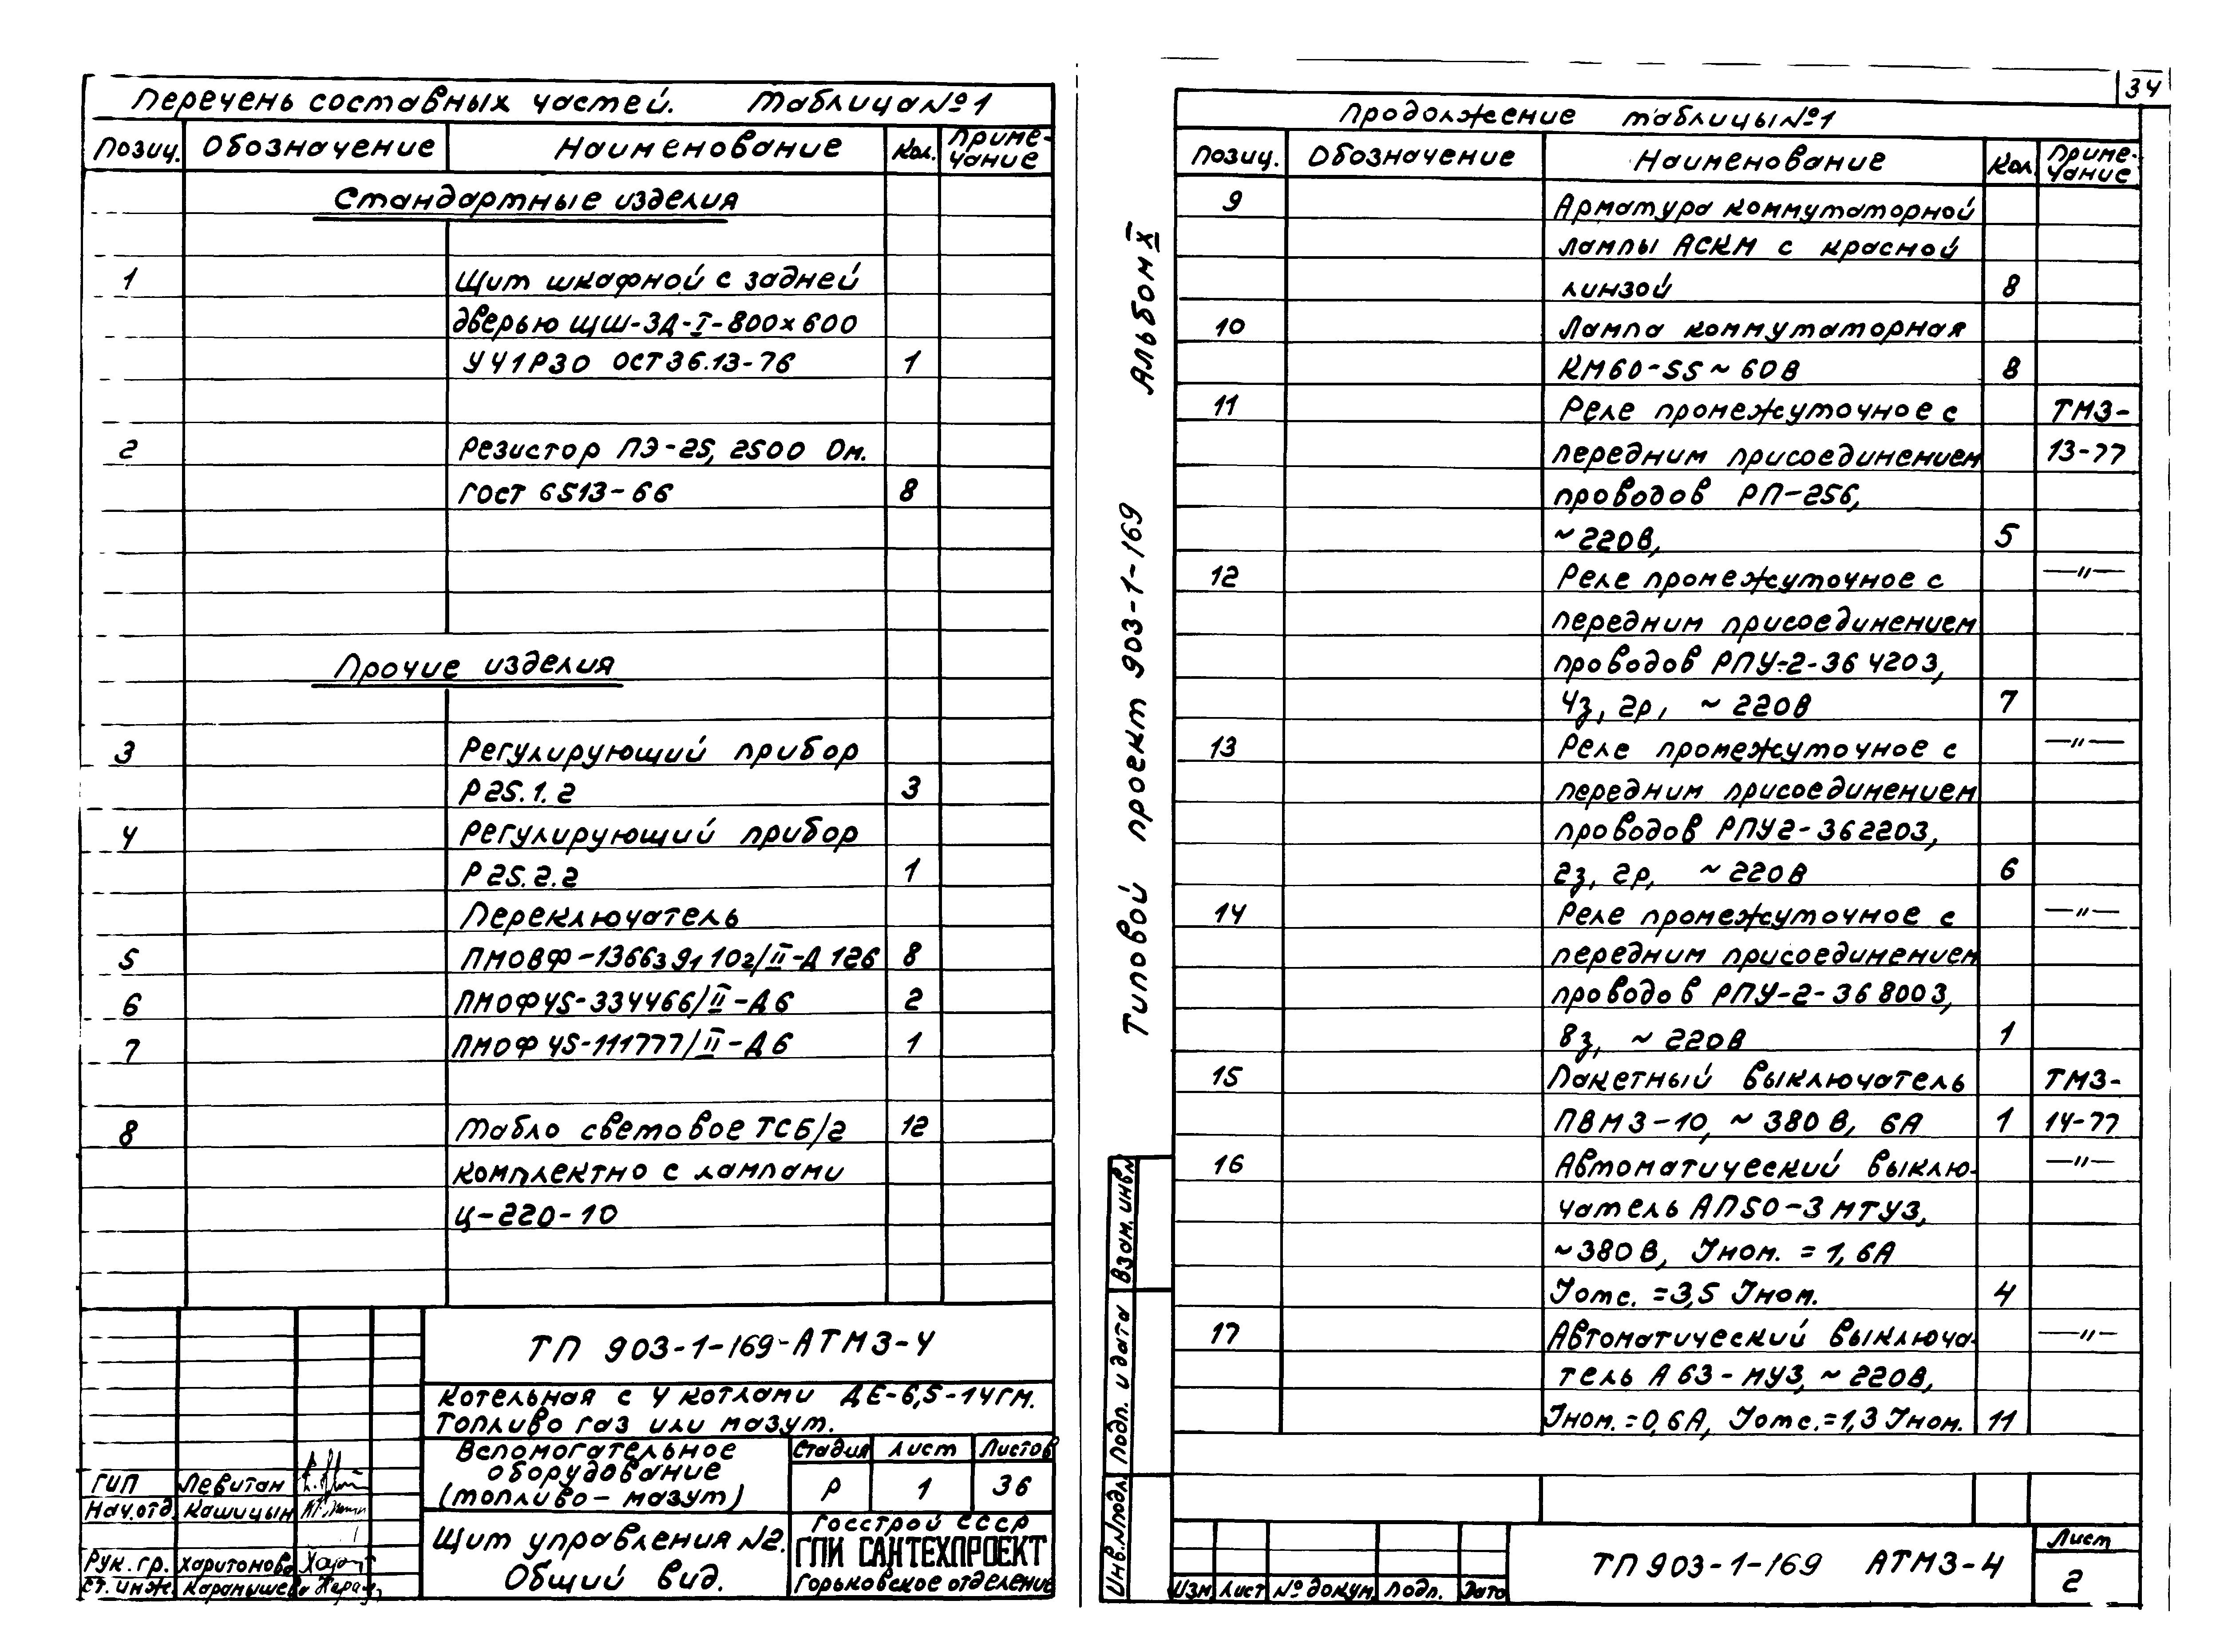 Перечень составных частей. Таблица №1
Позиц. Обозначение Наименование Кол. Приме-
чание
Стандартные изделия
1 Щит шкафной с задней
дверью ЩШ-ЗД-I-800х600
УЧ1Р30 ОСТ36.13-76 1
2 Резистор ПЭ-25, 2500 Ом.
ГОСТ 6513-66 8
Прочие изделия
3 Регулирующий прибор
Р25.1.2 3
4 Регулирующий прибор
Р25.2.2 1
Переключатель
5 ПМОВФ-1366391102/II-Д126 8
6 ПМОФ45-334466/II-Д6 2
7 ПМОФ45-111777/II-Д6 1
8 Табло световое ТСБ/2 12
комплектно с лампами
Ц-220-10
ТП 903-1-169-АТМ3-4
Котельная с 4 котлами ДЕ-6,5-14ГМ.
Топливо газ или мазут.
Вспомогательное
оборудование
(топливо-мазут)
Стадия Лист Листов
Р 1 36
Щит управления №2.
Общий вид.
Госстрой СССР
ГПИ САНТЕХПРОЕКТ
Горьковское отделение
ГИП Левитан
Нач.отд. Кашицын
Рук. гр. Харитонова
Ст. инж. Каранышева
34
Альбом X
Типовой проект 903-1-169
Продолжение таблицы №1
Позиц. Обозначение Наименование Кол. Приме-
чание
9 Арматура коммутаторной
лампы АСКМ с красной
линзой 8
10 Лампа коммутаторная
КМ60-55 ~ 60В 8
11 Реле промежуточное с ТМ3-
передним присоединением 13-77
проводов РП-256,
~220В, 5
12 Реле промежуточное с —"—
передним присоединением
проводов РПУ-2-364203,
4з, 2р, ~ 220В 7
13 Реле промежуточное с —"—
передним присоединением
проводов РПУ2-362203,
2з, 2р, ~ 220В 6
14 Реле промежуточное с —"—
передним присоединением
проводов РПУ-2-368003,
8з, ~ 220В 1
15 Пакетный выключатель ТМ3-
ПВМ3-10, ~ 380 В, 6А 1 14-77
16 Автоматический выклю- —"—
чатель АП50-3МТУ3,
~380В, Iном. = 1,6А
Iотс. = 3,5 Iном. 4
17 Автоматический выключа- —"—
тель А63-МУ3, ~ 220В,
Iном.=0,6А, Iотс.=1,3 Iном. 11
Взам. инв.№
Подп. и дата
Инв.№подл.
Изм Лист № докум. Подп. Дата
ТП 903-1-169 АТМ3-4
Лист
2